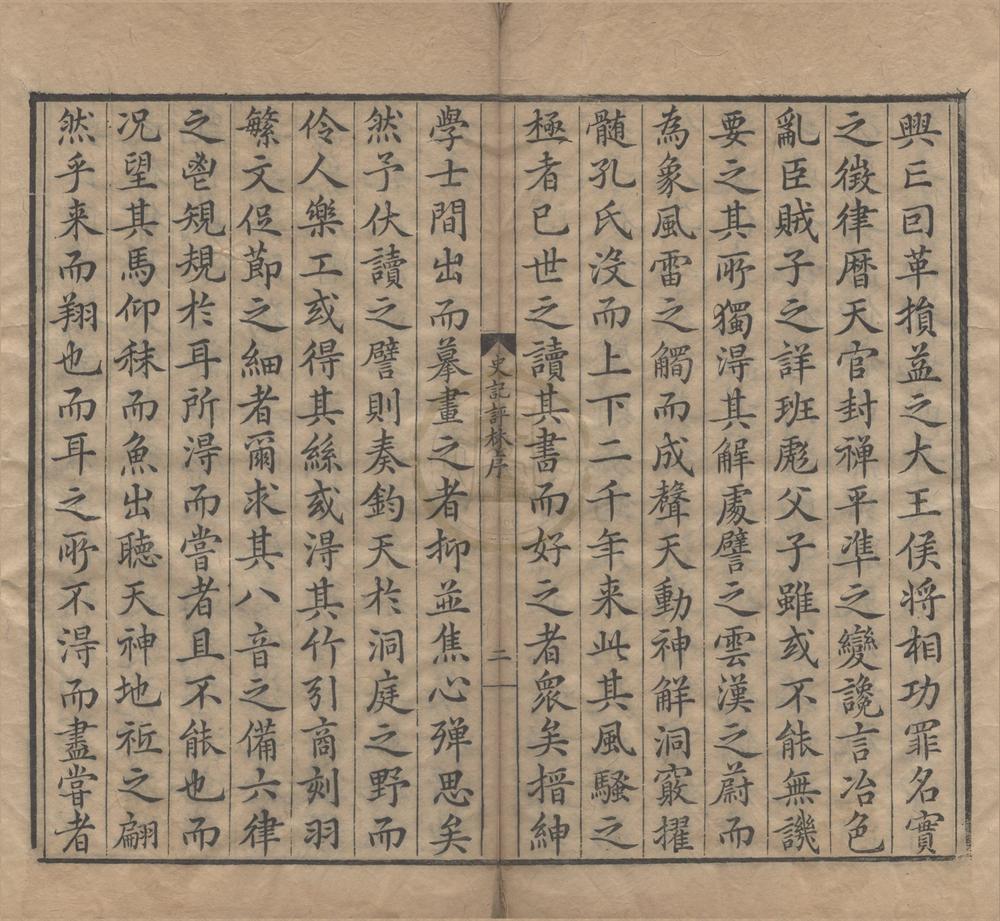 興亡回革損益之大王侯将相功罪名實
之徵律曆天官封禅平凖之變讒言冶色
亂臣賊子之詳班彪父子雖或不能無譏
要之其所獨淂其解處譬之雲漢之蔚而
為象風雷之觸而成聲天動神解洞竅擢
髄孔氏没而上下二千年来此其風騷之
極者已世之讀其書而好之者衆矣搢紳
史記評林序
二
學士間出而摹畫之者抑並焦心殫思矣
然予伏讀之譬則奏鈞天於洞庭之野而
伶人樂工或得其絲或淂其竹引商刻羽
繁文促節之細者爾求其八音之備六律
之鬯規規於耳所淂而嘗者且不能也而
况望其馬仰秣而魚出聽天神地祇之翩
然乎来而翔也而耳之所不淂而盡嘗者